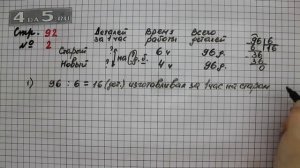 4da5.ru
Стр. 92 Деталей Время Всего
№ 2 за 1 час работы деталей
Старый ? 6 ч 96 д.
на ? д.
Новый ? 4 ч 96 д.
96 6
6 16
36
36
0
1) 96 : 6 = 16 (дет.) изготавливал за 1 час на старом